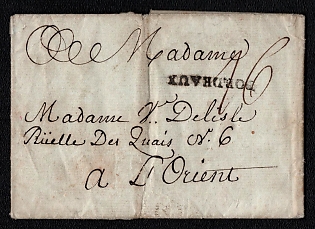 A Madame
16
BORDEAUX
Madame Ve. Delisle
Rüelle Des Quais No. 6
a L'Orient